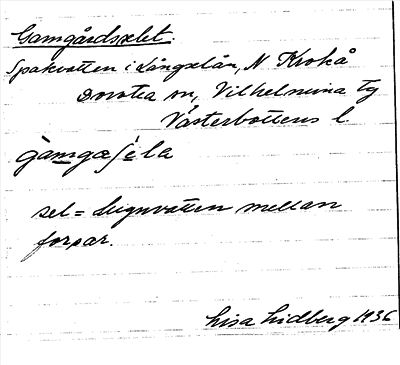 Gamgårdsselet.
Spakvatten i Långselån, N Krokå
Dorotea sn, Vilhelmina tg
Västerbottens l
gamgaſela
sel = lugnvatten mellan
forsar.
Lisa Lidberg 1936